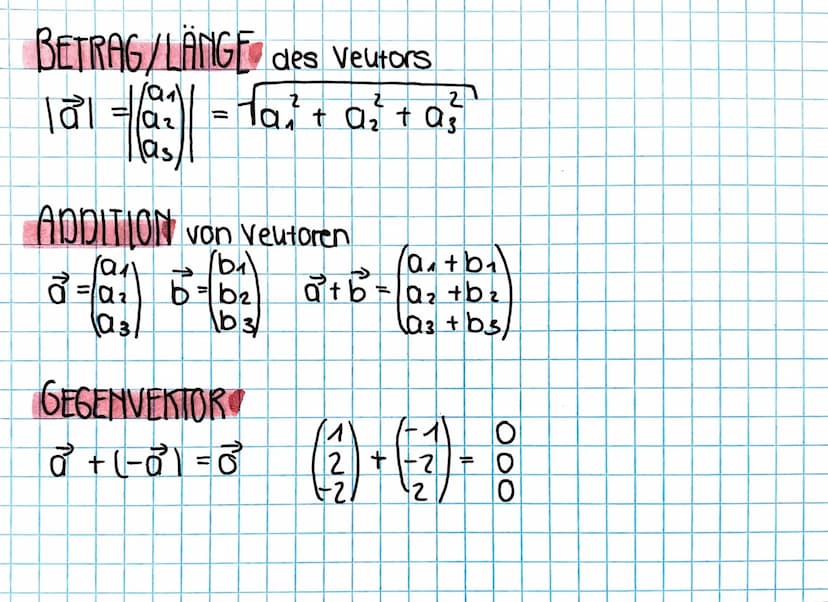 BETRAG/LÄNGE des Vektors
|a⃗| = |(a₁ a₂ a₃)| = √a₁² + a₂² + a₃²
ADDITION von Vektoren
a⃗ = (a₁ a₂ a₃) b⃗ = (b₁ b₂ b₃) a⃗ + b⃗ = (a₁ + b₁ a₂ + b₂ a₃ + b₃)
GEGENVEKTOR
a⃗ + (-a⃗) = o⃗ (1 2 -2) + (-1 -2 2) = 0 0 0